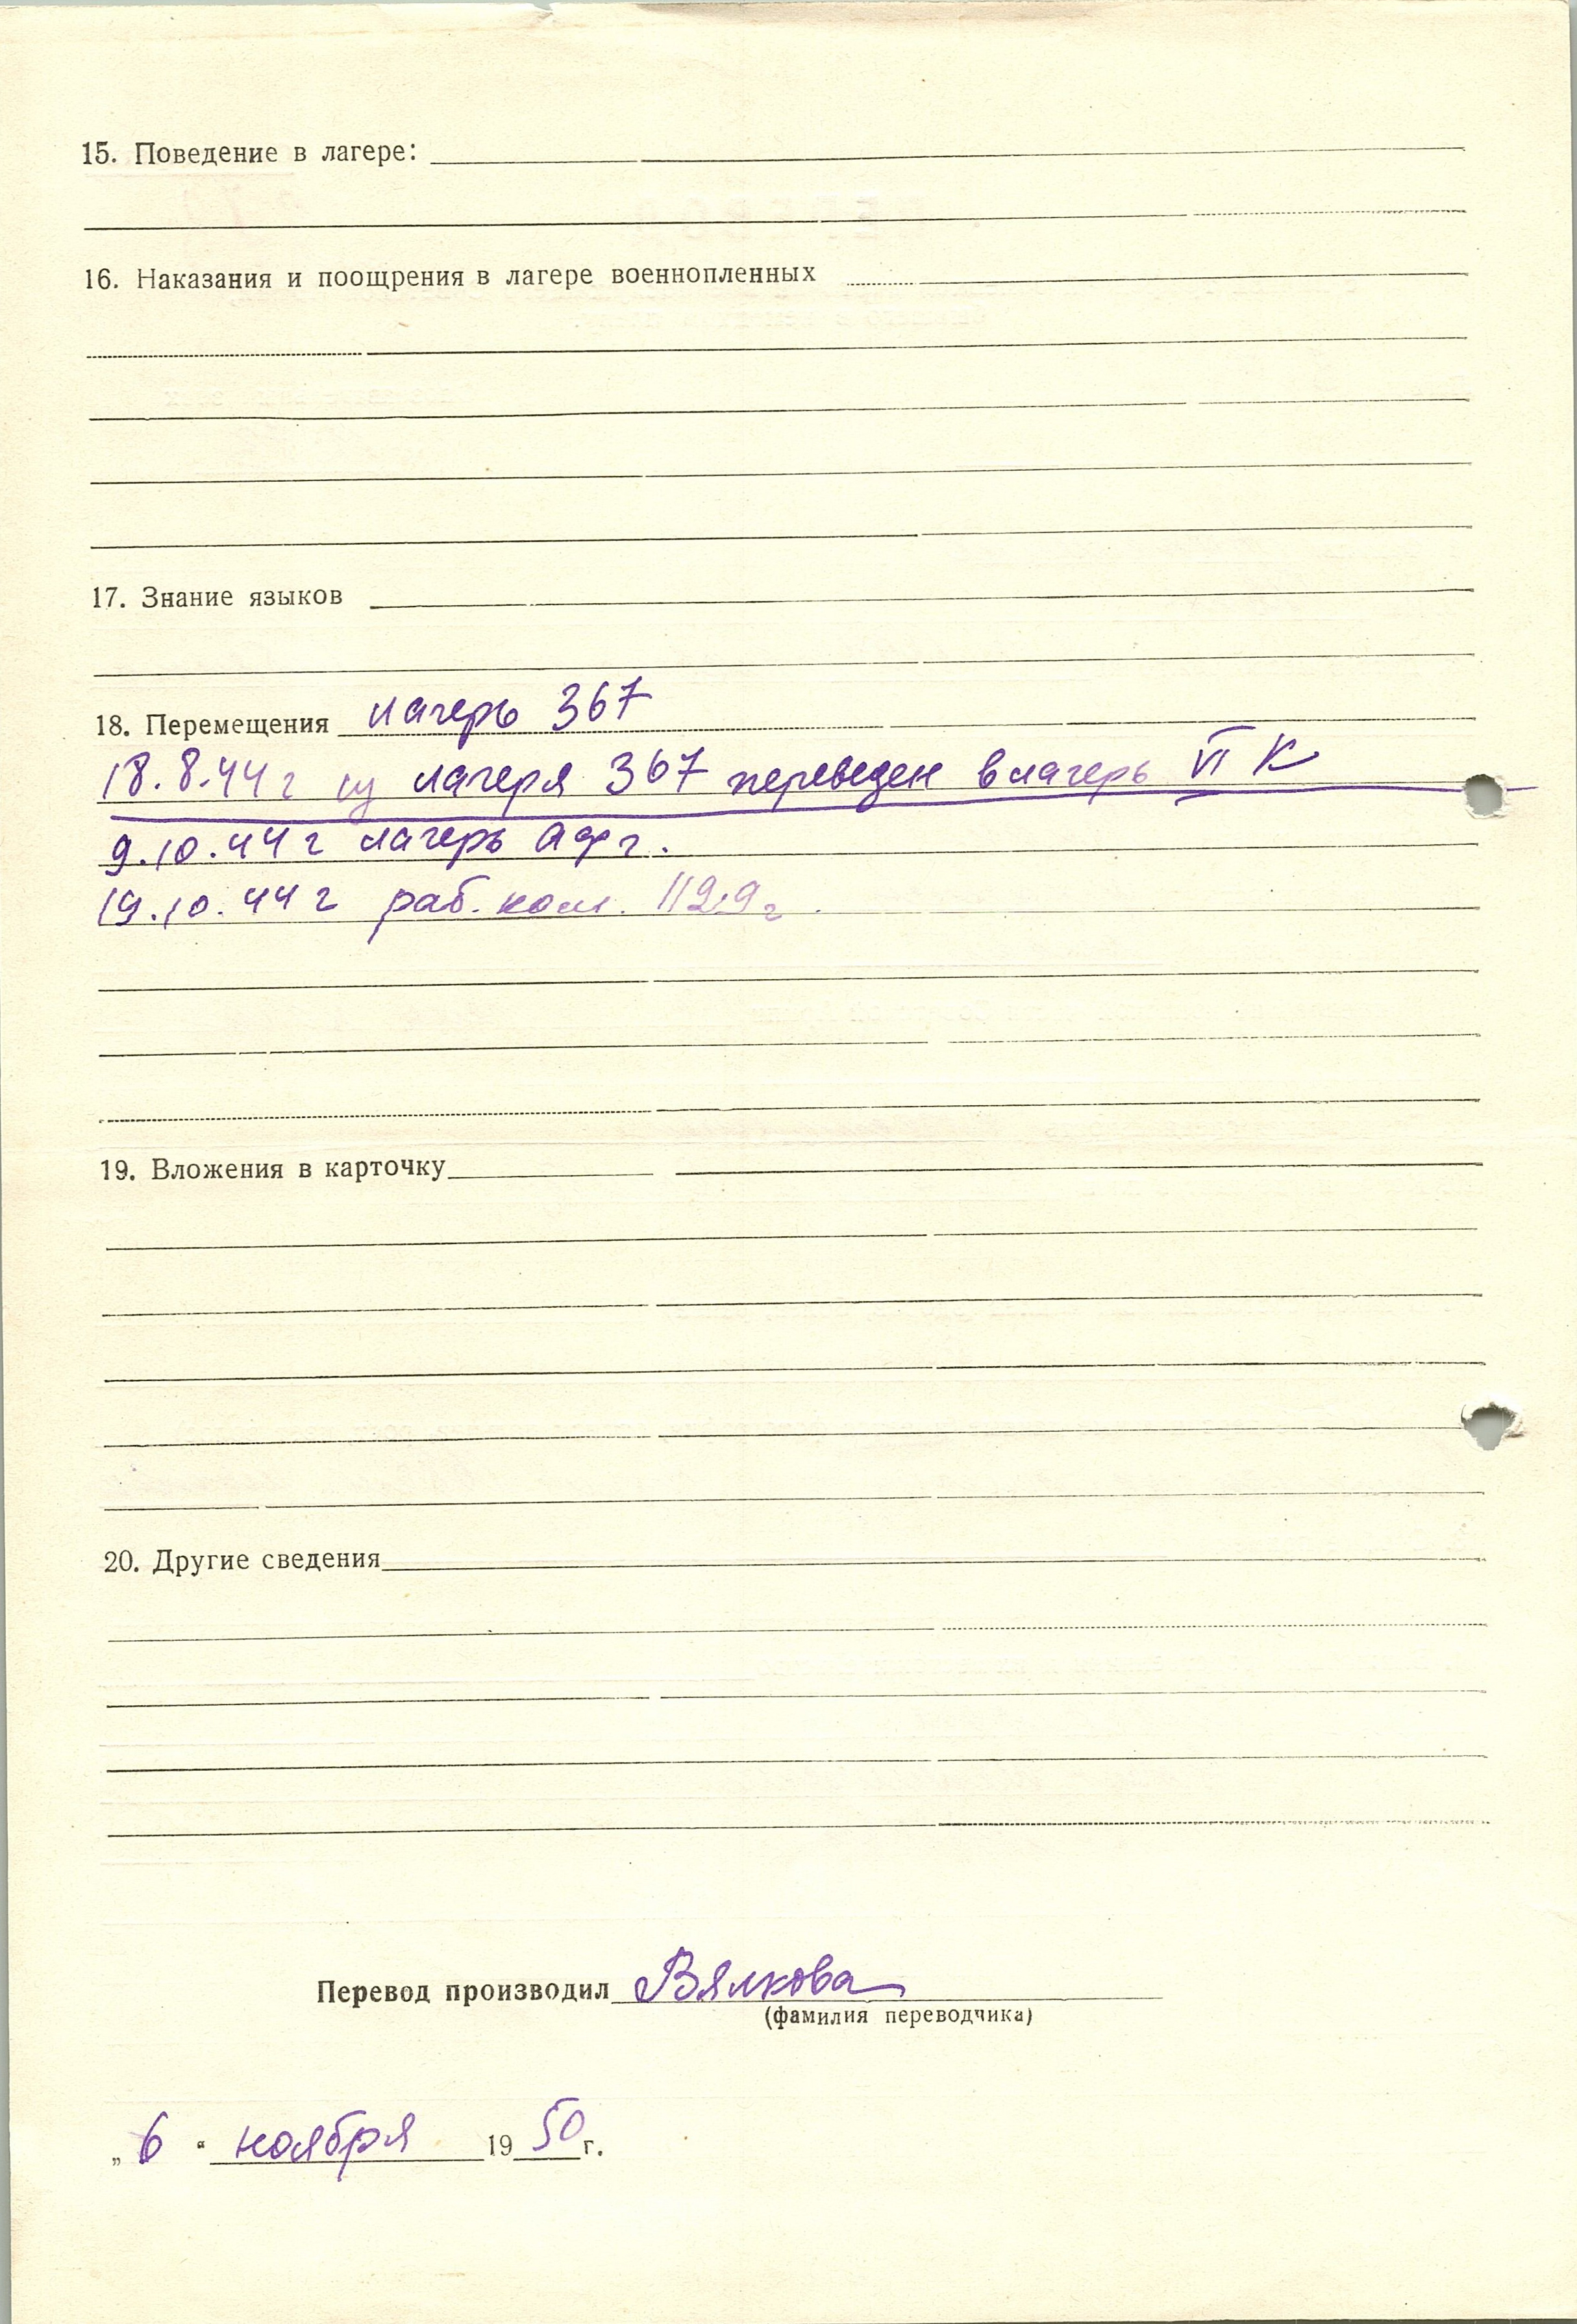 15. Поведение в лагере:
16. Наказания и поощрения в лагере военнопленных
17. Знание языков
18. Перемещения лагерь 367
18.8.44 г из лагеря 367 переведен в лагерь VI К
9.10.44 г лагерь
19.10.44 г раб. ком. 1129 г
19. Вложения в карточку
20. Другие сведения
Перевод производил Вялкова
(фамилия переводчика)
„ 6 “ ноября 1950 г.